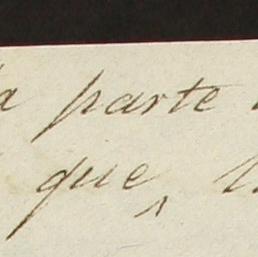 la parte
que